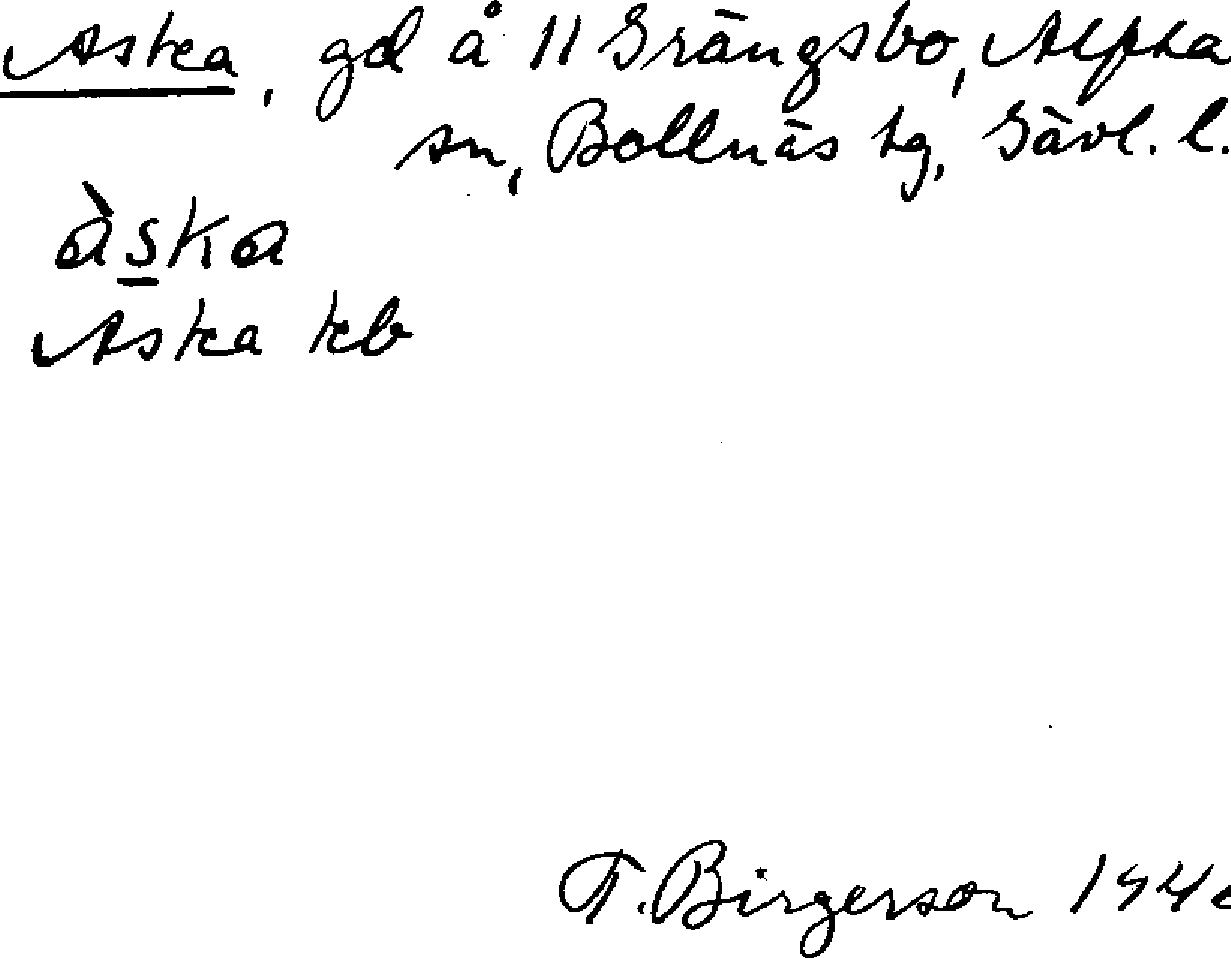 Aska, gd å 11 Grängsbo, Alfta
sn, Bollnäs tg, Gävl. l.
àska
Aska kb
T. Birgerson